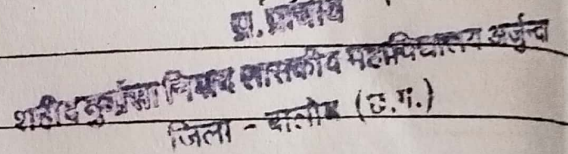 प्रा. प्राचार्य
शहीद दुर्वासा निषाद शासकीय महाविद्यालय अर्जुन्दा
जिला - बालोद (छ.ग.)